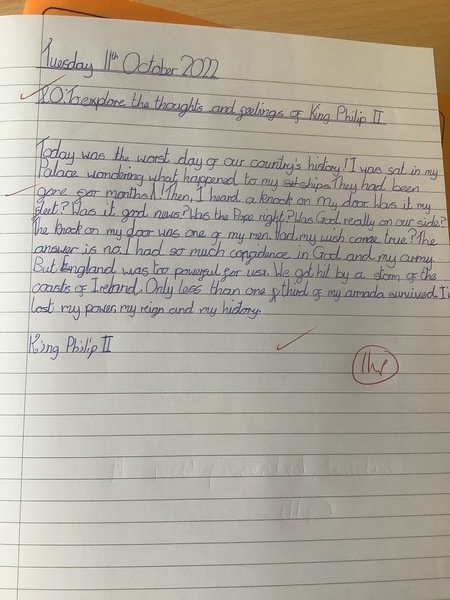 Tuesday 11th October 2022
LO: To explore the thoughts and feelings of King Philip II
Today was the worst day of our country's history! I was sat in my
Palace wondering what happened to my ships. They had been
gone for months! Then, I heard a knock on my door. Was it my
fleet? Was it good news? Was the Pope right? Was God really on our side?
The knock on my door was one of my men. Had my wish come true? The
answer is no. I had so much confidence in God and my army.
But England was too powerful for us. We got hit by a storm of the
coasts of Ireland. Only less than one third of my armada survived. I'v
lost my power, my reign and my history.
King Philip II
1hp